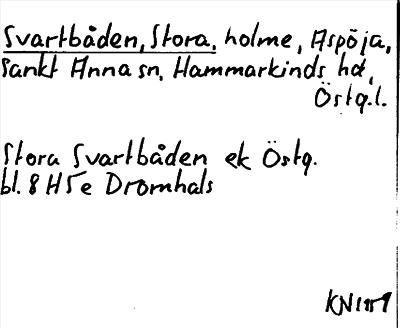 Svartbåden, Stora, holme, Aspöja,
Sankt Anna sn, Hammarkinds hd,
Östg.l.
Stora Svartbåden ek Östg.
bl. 8 H5e Dromhals